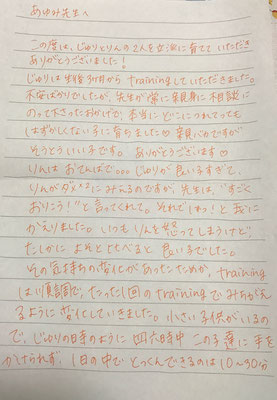 あゆみ先生へ
この度は、じゅりとりんの2人を立派に育てていただき
ありがとうございました!
じゅりは生後3か月から trainingしていただきました。
不安ばかりでしたが、先生が常に親身に相談に
のって下さったおかげで、本当にどこにつれてっても
はずかしくない子に育ちました♡ 親バカですが
そうとういい子です。 ありがとうございます♡
りんはおてんばで○○○ じゅりが良い子すぎて、
りんがダメダメにみえるのですが、先生は、"すごく
おりこう!"と言ってくれて。それで「はっ!」と我に
かえりました。いつもりんを怒ってしまうけど
たしかに よそとくらべると 良い子でした。
その気持ちの変化があったためか、training
は順調で、たった1回のtrainingでみちがえ
るように変化していきました。小さい子供がいるの
で、じゅりの時のように 四六時中 この子達に手を
かけられず、1日の中でとっくんできるのは10〜30分